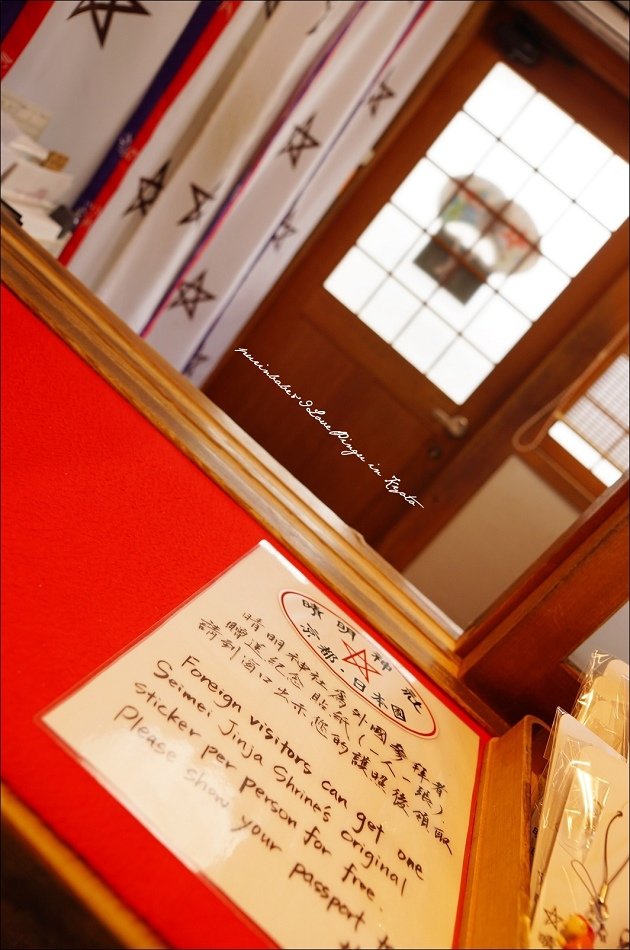 purinbaby & I Love Pingu in Kyoto
晴明神社
京都·日本国
晴明神社為外國參拜者
贈送紀念貼紙(一人一張).
請到窗口出示您的護照後領取
Foreign visitors can get one
Seimei Jinja Shrine's original
sticker per person for free.
Please show your passport